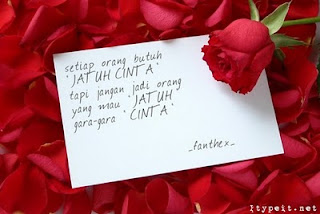 setiap orang butuh
`JATUH CINTA`
tapi jangan jadi orang
yang mau `JATUH`
gara-gara `CINTA`
_fanthex_
ltypeit.net